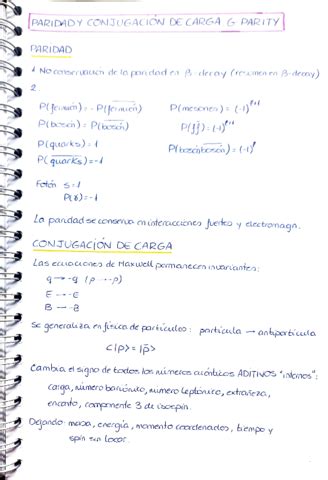 PARIDAD Y CONJUGACIÓN DE CARGA G PARITY
PARIDAD
1 No conservación de la paridad en β-decay (resumen en β-decay)
2.
P(fermión) = - P(\overline{fermión}) P(mesones) = (-1)^{l+1}
P(bosón) = P(\overline{bosón}) P(f\overline{f}) = (-1)^{l+1}
P(quarks) = 1 P(bosón\overline{bosón}) = (-1)^l
P(\overline{quarks}) = -1
Fotón s=1
P(γ) = -1
La paridad se conserva en interacciones fuertes y electromagn.
CONJUGACIÓN DE CARGA
Las ecuaciones de Maxwell permanecen invariantes:
q → -q (ρ → -ρ)
E → -E
B → -B
Se generaliza en física de partículas: partícula → antipartícula
C|p> = |\overline{p}>
Cambia el signo de todos los números cuánticos ADITIVOS "internos":
carga, número bariónico, número leptónico, extrañeza,
encanto, componente 3 de isospín.
Dejando masa, energía, momento coordenados, tiempo y
spin sin tocar.